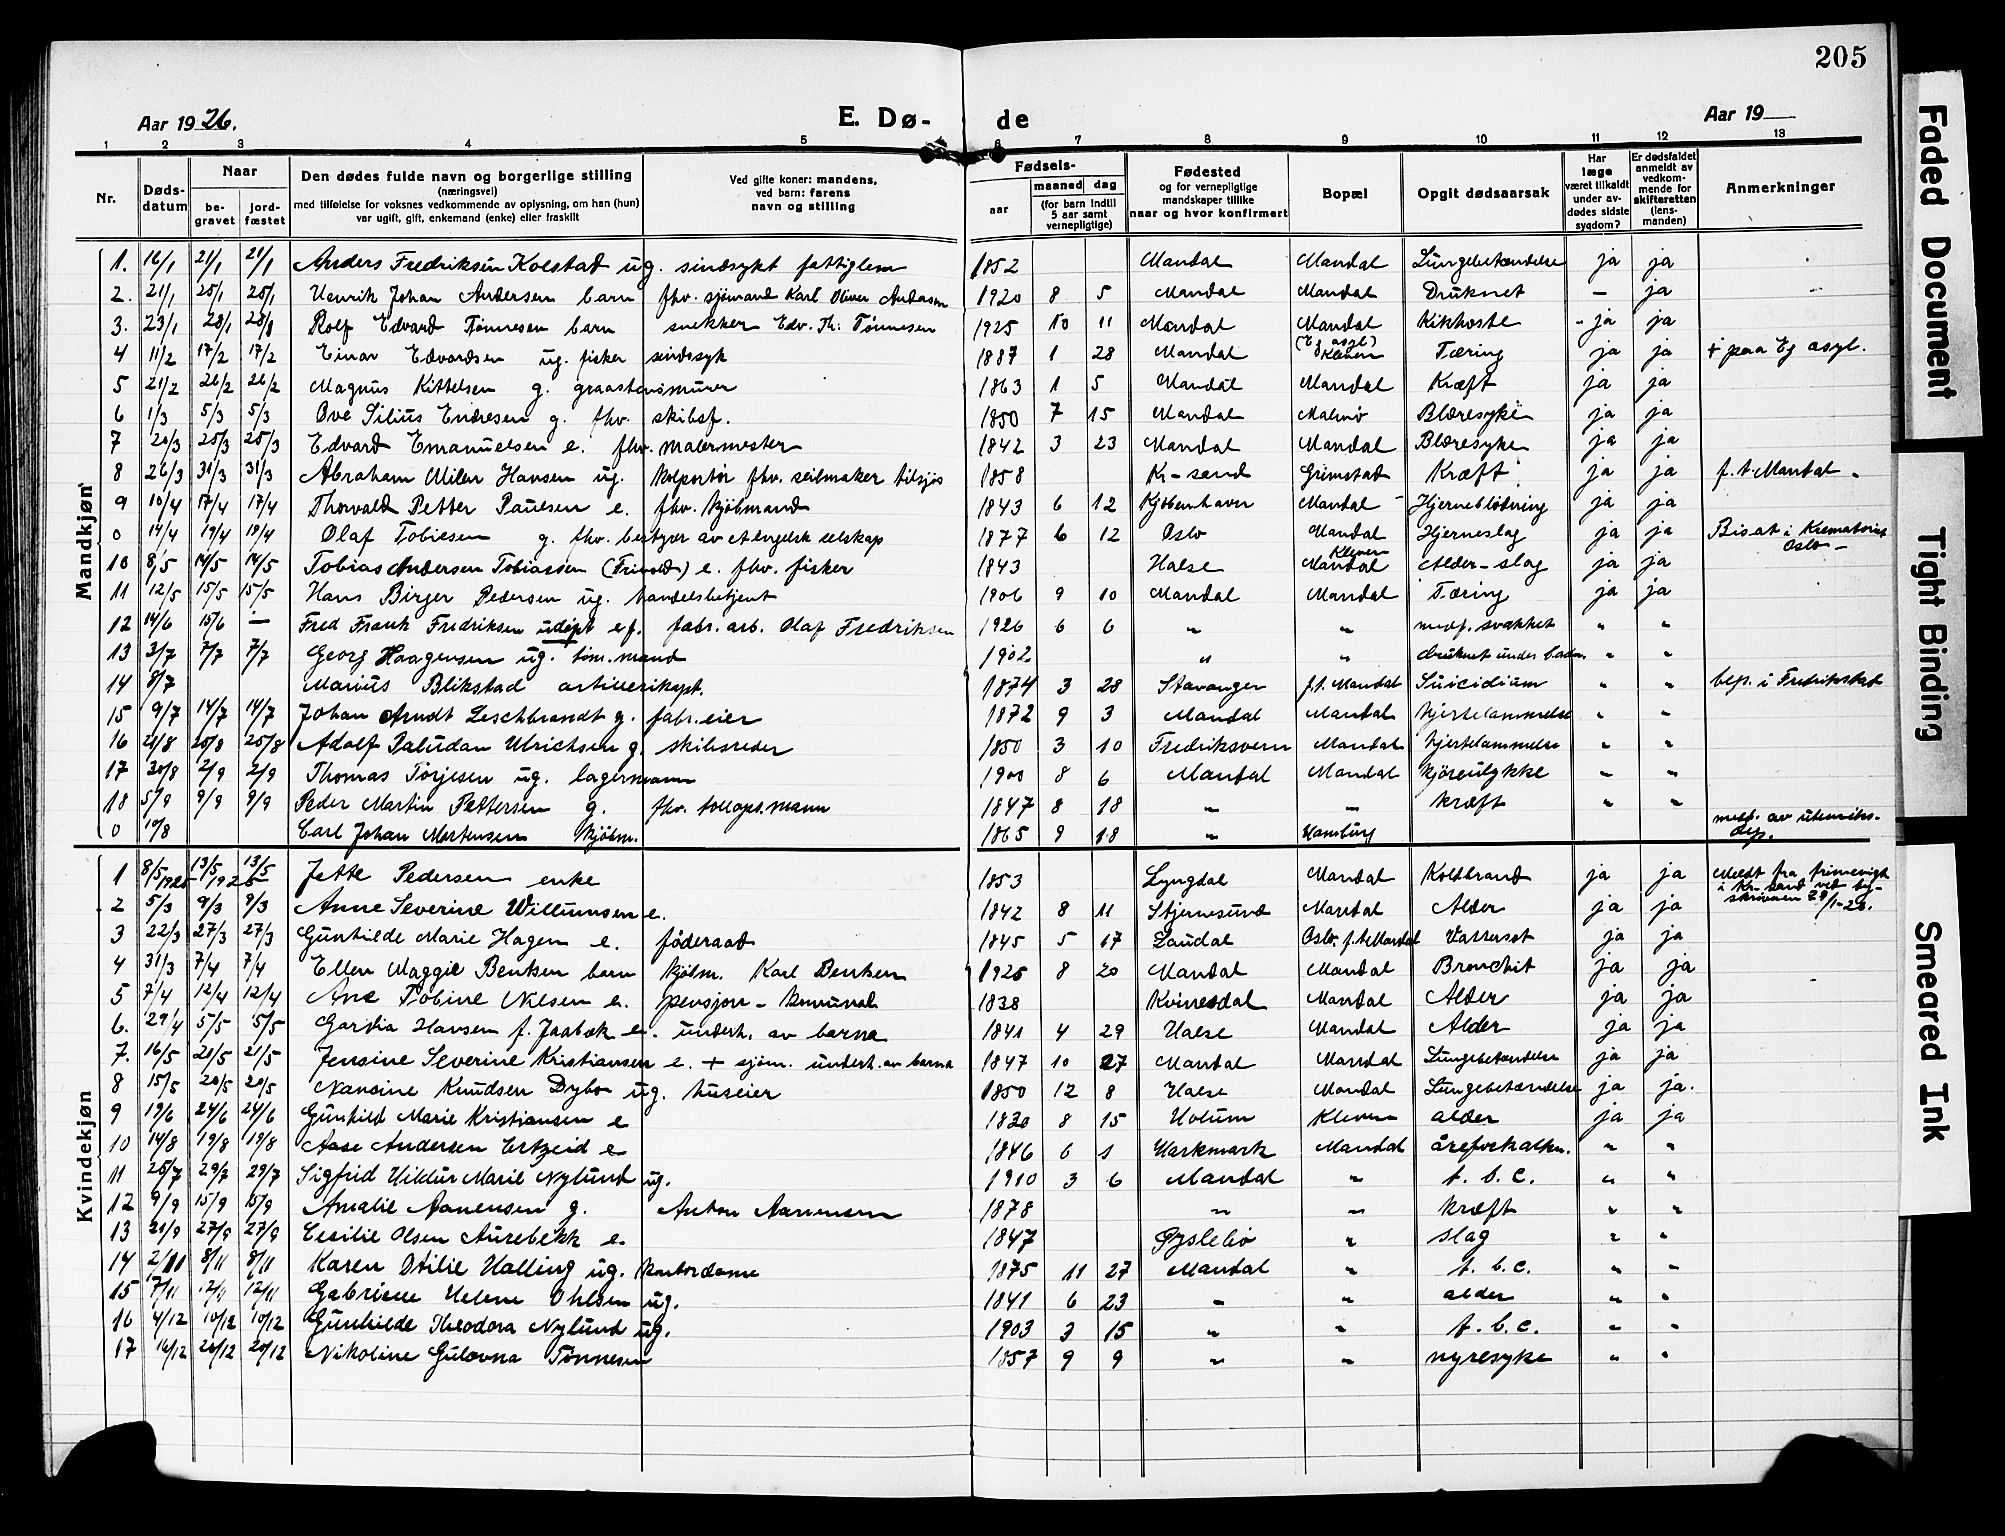 205
Aar 1926.
E. Dø-
de
Aar 19
1 2 3 4 5 6 7 8 9 10 11 12 13
Nr.
Døds-
datum
Naar
be-
gravet
jord-
fæstet
Den dødes fulde navn og borgerlige stilling
(næringsvei)
med tilføielse for voksnes vedkommende av oplysning, om han (hun)
var ugift, gift, enkemand (enke) eller fraskilt
Ved gifte koner: mandens,
ved barn: farens
navn og stilling
Fødsels-
aar
maaned
dag
(for barn indtil
5 aar samt
vernepligtige)
Fødested
og for vernepligtige
mandskaper tillike
naar og hvor konfirmert
Bopæl
Opgit dødsaarsak
Har
læge
været tilkaldt
under av-
dødes sidste
sygdom?
Er dødsfaldet
anmeldt av
vedkom-
mende for
skifteretten
(lens-
manden)
Anmerkninger
Mandkjøn
1. 16/1 21/1 21/1 Anders Fredriksen Kolstad ug. sindsykt fattiglem 1852 Mandal Mandal Lungebetændelse ja ja
2. 21/1 25/1 25/1 Henrik Johan Andersen barn fhv. sjømand Karl Oliver Andersen 1920 8 5 Mandal Mandal Druknet — ja
3. 23/1 28/1 28/1 Rolf Edvard Tønnesen barn snekker Edv. Th. Tønnesen 1925 10 11 Mandal Mandal Kikhoste ja ja
4 11/2 17/2 17/2 Einar Edvardsen ug. fisker sindssyk 1887 1 28 Mandal (Eg asyl) Kleven Tæring ja ja + paa Eg asyl.
5 21/2 26/2 26/2 Magnus Kittelsen g. graastensmurer 1863 1 5 Mandal Mandal Kræft ja ja
6 1/3 5/3 5/3 Ove Silius Endresen g. fhv. skibsf. 1850 7 15 Mandal Malmø Blæresyke ja ja
7 20/3 25/3 25/3 Edvard Emanuelsen e. fhv. malermester 1842 3 23 Mandal Mandal Blæresyke ja ja
8 26/3 31/3 31/3 Abraham Hansen ug. Kolportør fhv. seilmaker tilsjøs 1858 Kr-sand Grimstad Kræft ja ja f.t. Mandal
9 10/4 17/4 17/4 Thorvald Petter Paulsen e. fhv. kjøbmand 1843 6 12 Kjøbenhavn Mandal Hjerneblødning ja ja
0 14/4 19/4 19/4 Olaf Tobiesen g. fhv. bestyrer av et engelsk selskap 1877 6 12 Oslo Mandal Hjerneslag ja ja Bisat i Krematoriet Oslo
10 8/5 14/5 14/5 Tobias Andersen Tobiassen e. fhv. fisker 1843 Halse Kleven Mandal Alder-slag ja ja
11 12/5 15/5 15/5 Hans Birger Pedersen ug. handelsbetjent 1906 9 10 Mandal Mandal Tæring ja ja
12 14/6 15/6 — Fred Frank Fredriksen udøpt ef. fabr. arb. Olaf Fredriksen 1926 6 6 " " medf. svakhet " "
13 3/7 7/7 7/7 Georg Haagensen ug. tøm.mand 1902 " " druknet under badn. " "
14 8/7 Marius Blikstad artillerikapt. 1874 3 28 Stavanger f.t. Mandal Suicidium " " bep. i Fredrikstad
15 9/7 14/7 14/7 Johan Arndt Leschbrandt g. fabr.eier 1872 9 3 Mandal Mandal hjertelammelse " "
16 21/8 25/8 25/8 Adolf Paludan Ulrichsen g. skibsreder 1850 3 10 Fredriksvern Mandal hjertelammelse " "
17 30/8 2/9 2/9 Thomas Torjesen ug. lagermann 1900 8 6 Mandal Mandal kjøreulykke " "
18 5/9 9/9 9/9 Peder Martin Pettersen g. fhv. tollops.mann 1847 8 18 " " kræft " "
0 10/8 Carl Johan Mortensen kjøbm. 1865 9 18 " Hamburg medd. av utenriks-dep.
Kvindekjøn
1 8/5 1925 13/5 1925 13/5 Jette Pedersen enke 1853 Lyngdal Mandal Koldbrand ja ja Meldt fra i Kr-sand ved by-skriveren 28/1-26.
2 5/3 9/3 9/3 Anne Severine Willumsen e. 1842 8 11 Stjernesund Mandal Alder ja ja
3 22/3 27/3 27/3 Gunhilde Marie Hagen e. føderaad 1845 5 17 Laudal Oslo. f.t. Mandal Vattersot ja ja
4 31/3 7/4 7/4 Ellen Maggie Bentsen barn kjøbm. Karl Bentsen 1925 8 20 Mandal Mandal Bronchit ja ja
5 7/4 12/4 12/4 Ane Tobine Nilsen e. pensjon - Komunal 1838 Kvinesdal Mandal Alder ja ja
6. 29/4 5/5 5/5 Hansen f. Jaabæk e. underh. av barna 1841 4 29 Halse Mandal Alder ja ja
7. 16/5 21/5 21/5 Jensine Severine Kristiansen e. + sjøm. underh. av barna 1847 10 27 Mandal Mandal Lungebetændelse ja ja
8 15/5 20/5 20/5 Nansine Knudsen Dybo ug. huseier 1850 12 8 Halse Mandal Lungebetændelse ja ja.
9 19/6 24/6 24/6 Gunhild Marie Kristiansen e 1830 8 15 Holum Kleven alder ja ja
10 14/8 19/8 19/8 Aase Andersen Ertzeid e 1846 6 1 Harkmark Mandal åreforkalkn. " "
11 25/7 29/7 29/7 Sigfrid Hildur Marie Nylund ug. 1910 3 6 Mandal " t.b.c. " "
12 9/9 15/9 15/9 Amalie Aanensen g. Anton Aanensen 1878 " " kræft " "
13 21/9 27/9 27/9 Cecilie Olsen Aurebekk e. 1847 Øyslebø " slag " "
14 2/11 8/11 8/11 Karen Otilie Halling ug. kontordame 1875 11 27 Mandal " t.b.c. " "
15 7/11 12/11 12/11 Gabrielle Helene Ohlsen ug. 1841 6 23 " " alder " "
16 4/12 10/12 10/12 Gunhilde Theodora Nylund ug. 1903 3 15 " " t.b.c. " "
17 16/12 20/12 20/12 Nikoline Gulovna Tønnesen 1857 9 9 " " nyresyke " "
Faded Document
Tight Binding
Smeared Ink